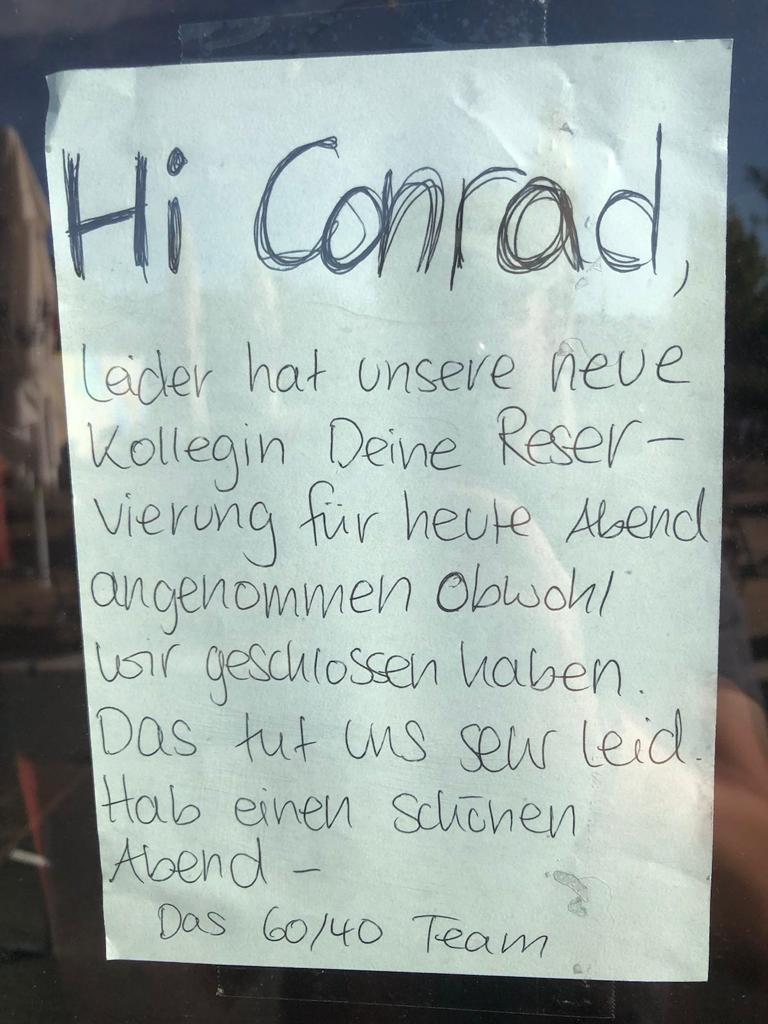 Hi Conrad,
Leider hat unsere neue
Kollegin Deine Reser-
vierung für heute Abend
angenommen obwohl
wir geschlossen haben.
Das tut uns sehr leid.
Hab einen schönen
Abend -
Das 60/40 Team